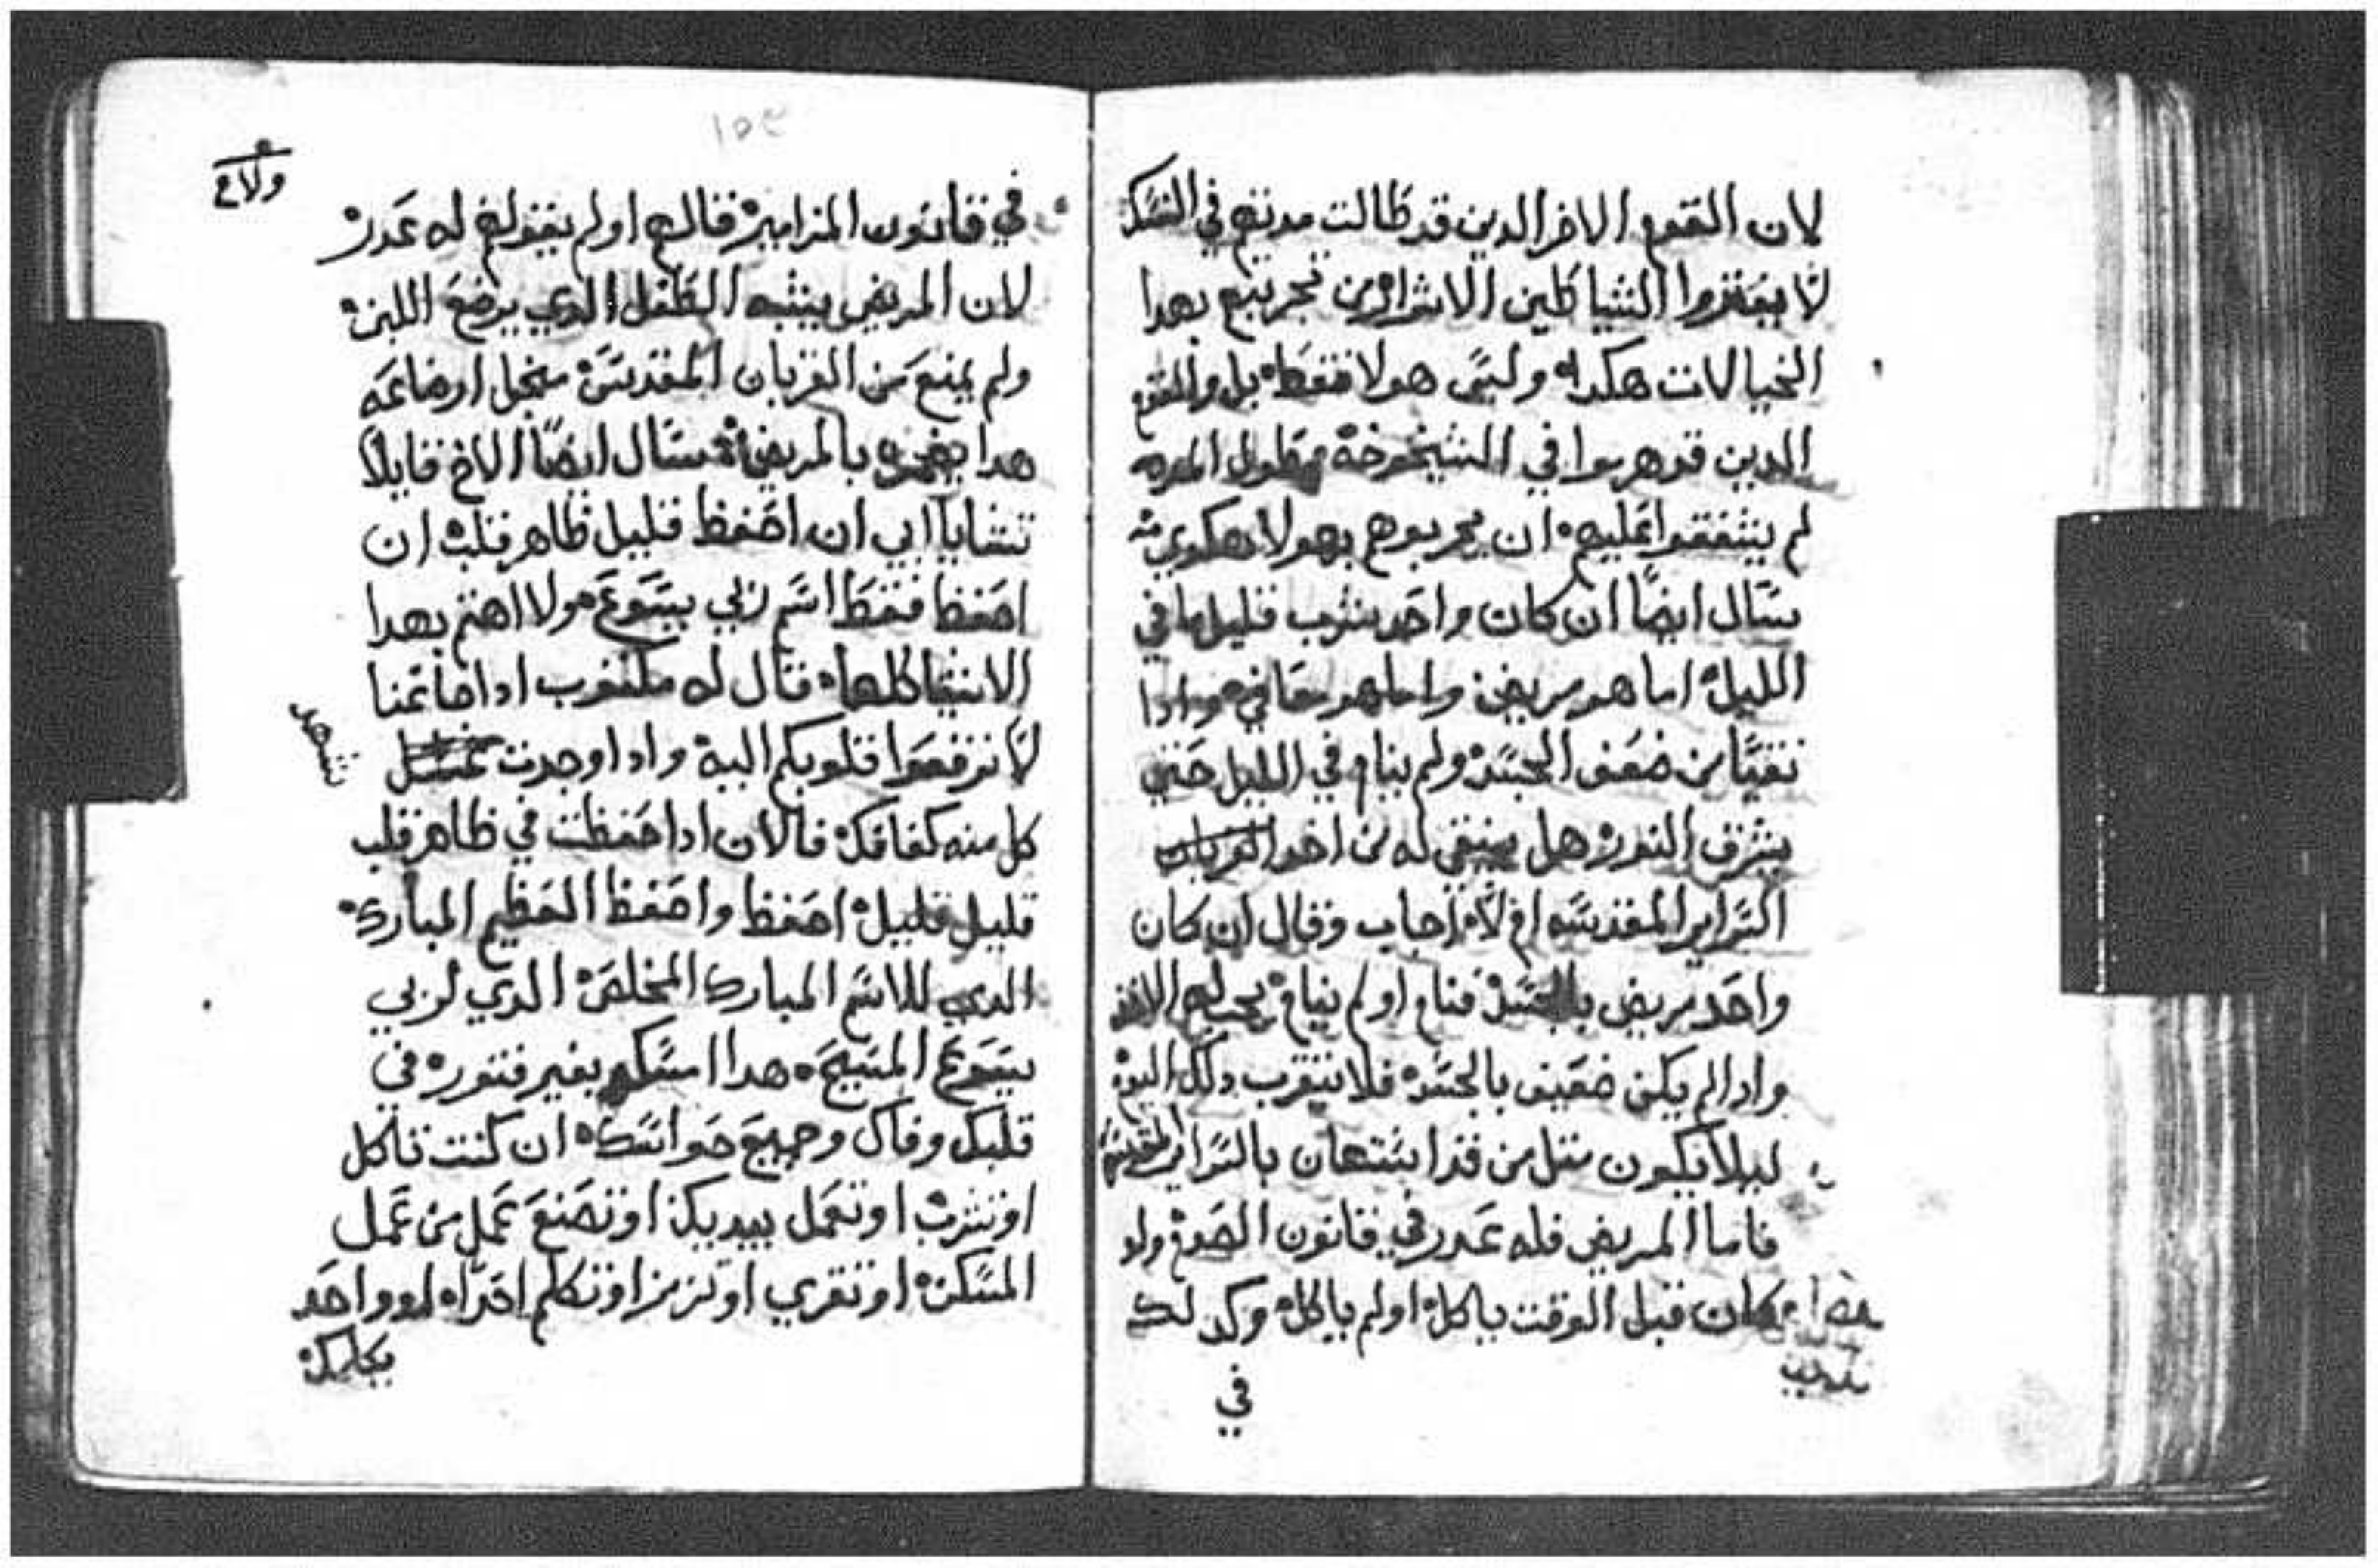 لان القوم الاخر الدين قد طالت مدتهم في النسك
لا يفتروا الشياطين الاشرار من تجربتهم بهدا
الخيالات هكدا ولیس هولا فقط بل والقوم
الدين قد هرموا في الشيخوخة وطول المده
لم يشفقوا عليهم ان يجربوهم بهولا هكدي
سال ايضا ان كان واحد يشرب قليل ما في
الليل اما هو مريض واما هو معافي وادا
تقيا من ضعف الجسد ولم ينام في الليل حتي
يشرق النور هل ينبغي له من اخد القربان
السراير المقدسه ام لا اجاب وقال ان كان
واحد مريض بالجسد فنام او لم ينام
وادا لم يكن ضعيف بالجسد فلا يتقرب دلك اليوم
ليلا يكون متل من قد استهان بالسراير المقدسه
فاما المريض فله عدر في قانون الصوم ولو
كان قبل الوقت ياكل او لم ياكل وكدلك
في
١٥٤
في قانون المزامير قالهم او لم يقولهم له عدر
لان المريض يشبه الطفل الدي يرضع اللبن
ولم يمنع من القربان المقدس من اجل ارضاعه
هدا بالمريض سال ايضا الاخ قايلا
تشا يا ابي ان احفظ قليل ظاهر قلب ان
احفظ فقط اسم ربي يسوع ولا اهتم بهدا
الاشيا كلها قال له مكتوب ادا ما غنا
لا ترفعوا قلوبكم اليه وادا وجدت عسل
كل منه كفافك فالان ادا حفظت في ظاهر قلب
قليل قليل احفظ واحفظ الحفظيم المبارك
الدي للاسم المبارك المخلص الدي لربي
يسوع المسيح هدا امسكه بغير فتور في
قلبك وفاك وجميع حواسك ان كنت تاكل
او تشرب او تعمل بيديك او تصنع عمل من عمل
المسكن او تقري او تزمر او تكلم احدا او واحد
يكلمك